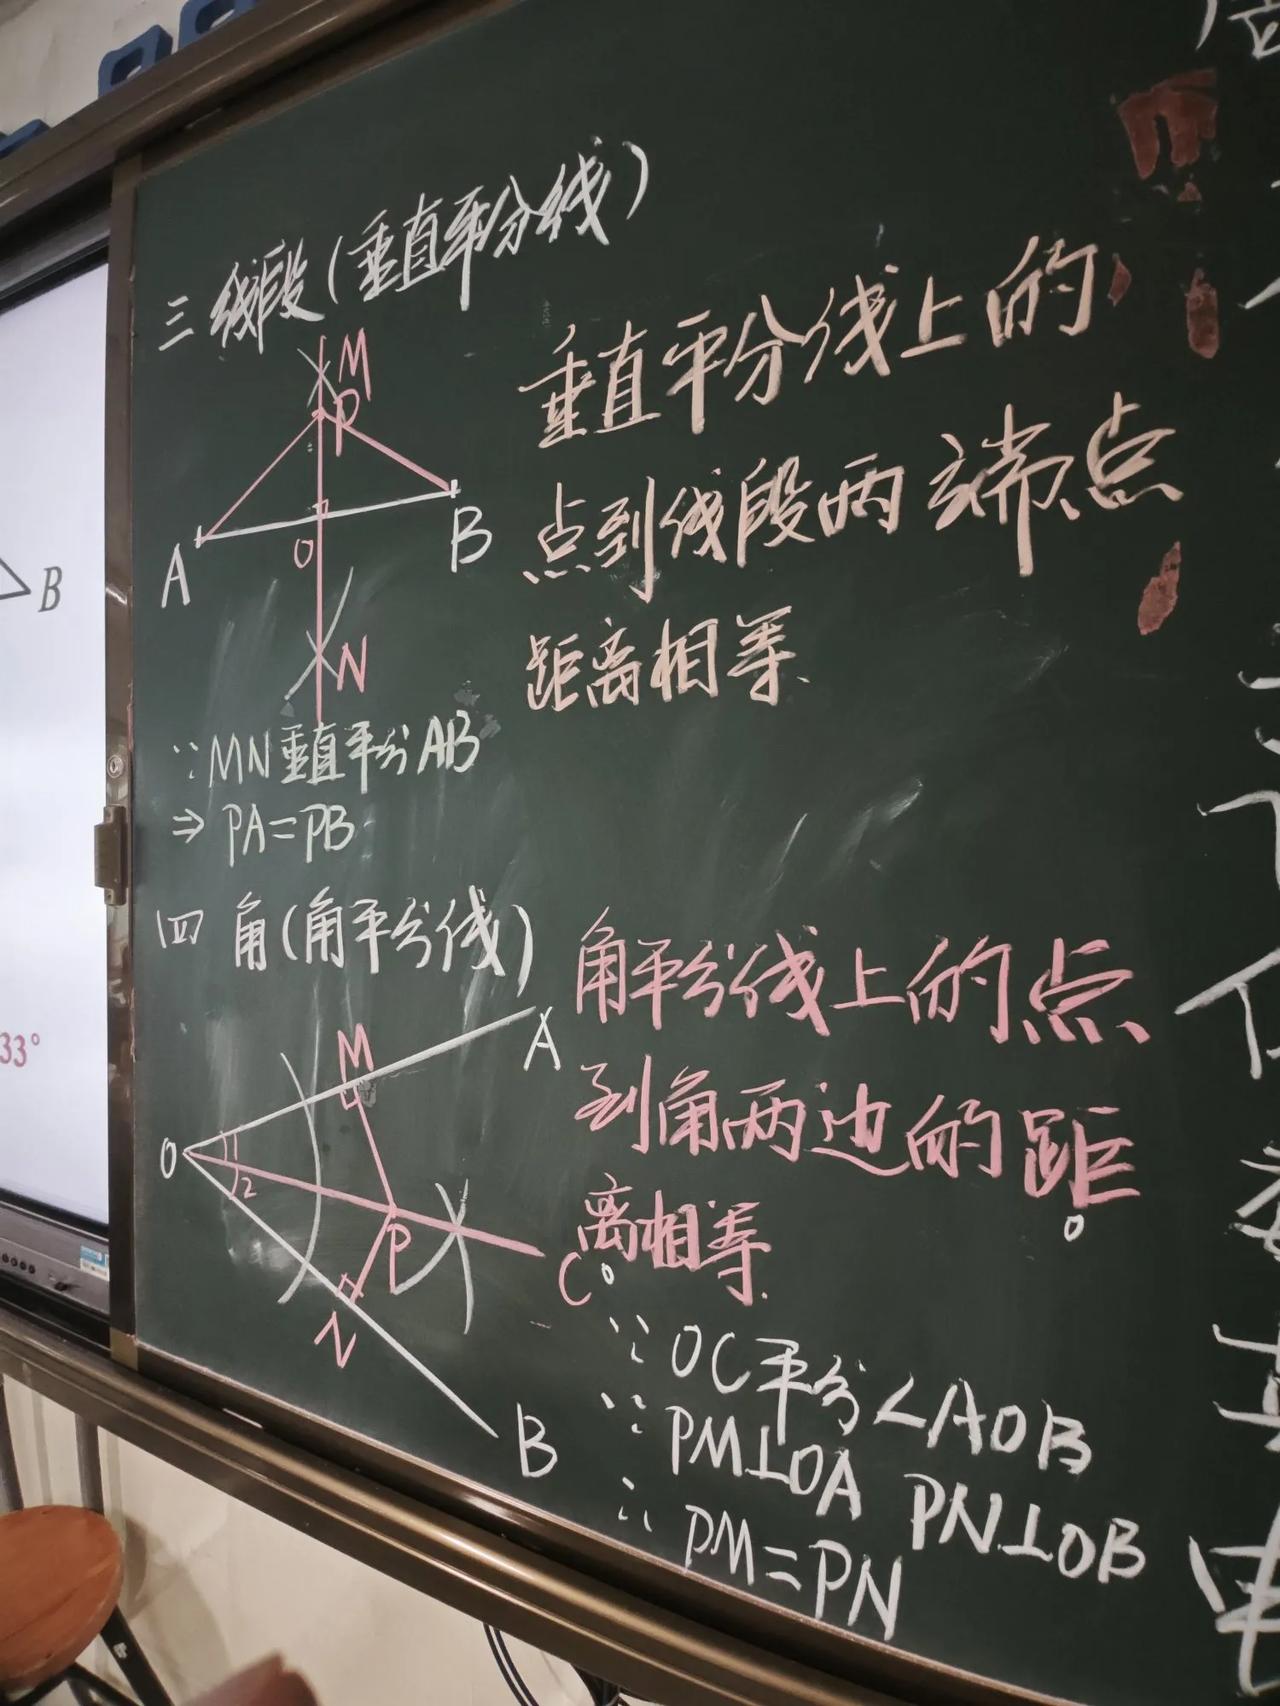 三 线段(垂直平分线)
M
P
A
O
B
N
垂直平分线上的
点到线段两端点
距离相等.
∵MN垂直平分AB
⇒ PA=PB
四 角(角平分线)
角平分线上的点
到角两边的距
离相等.
M
A
O
1
2
P
C
N
B
∵ OC平分∠AOB
∵ PM⊥OA PN⊥OB
∴ PM=PN
B
33°